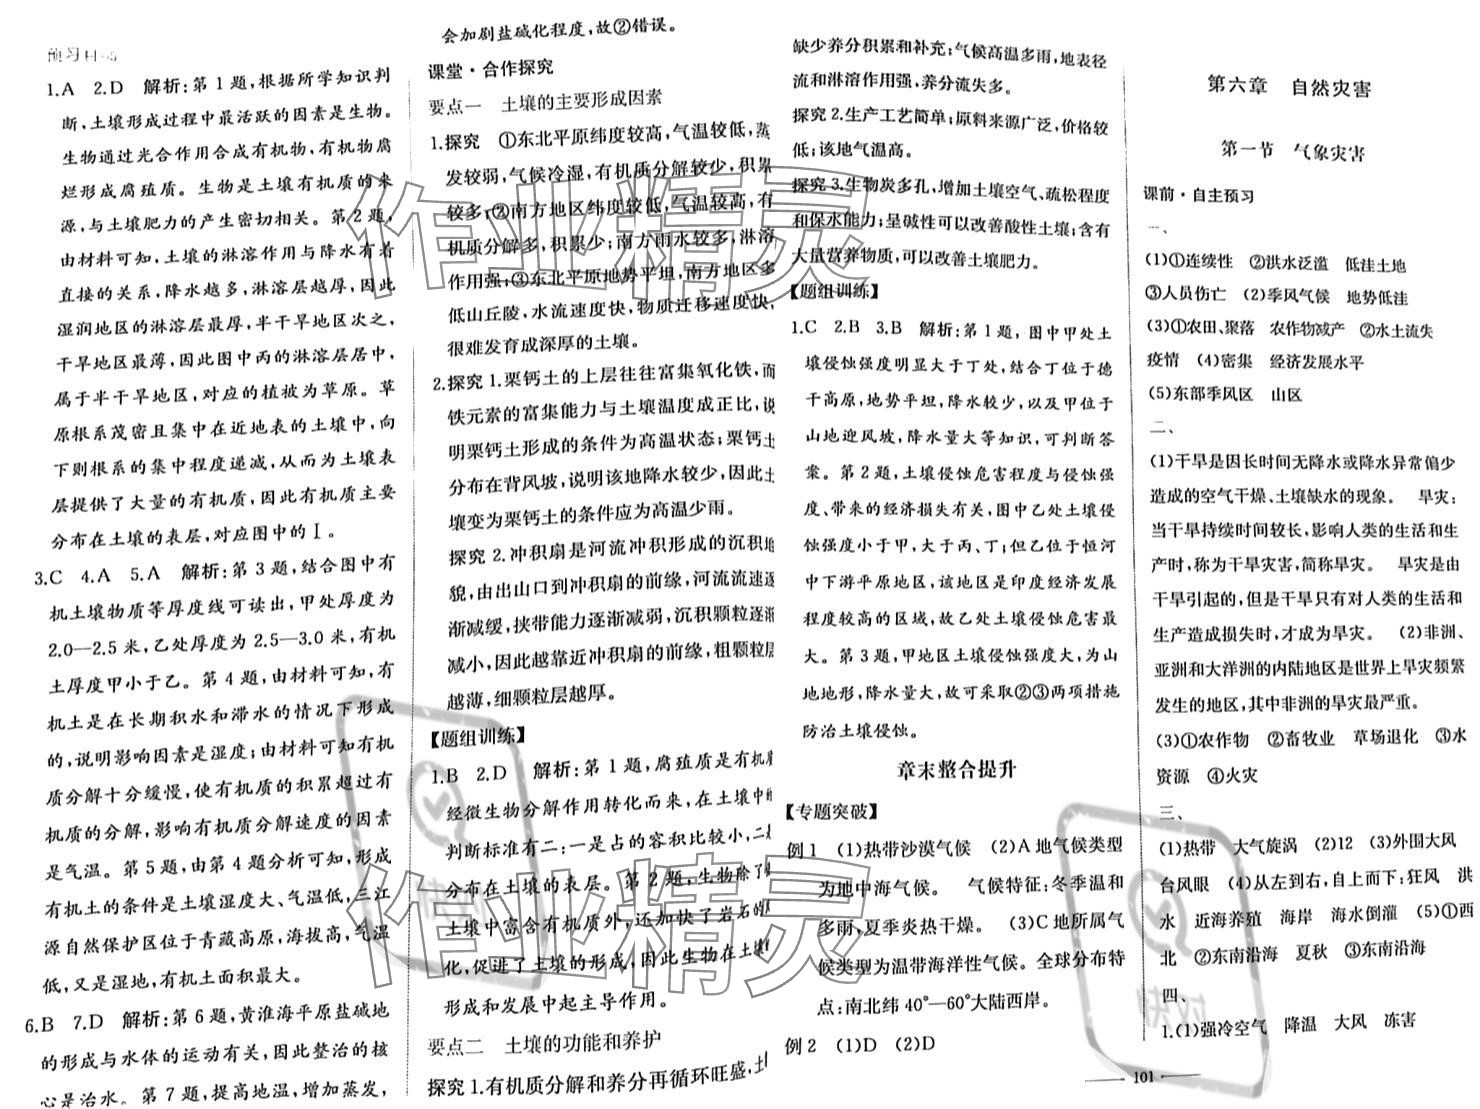 预习
1.A　2.D　解析:第1题,根据所学知识判
断,土壤形成过程中最活跃的因素是生物。
生物通过光合作用合成有机物,有机物腐
烂形成腐殖质。生物是土壤有机质的来
源,与土壤肥力的产生密切相关。第2题,
由材料可知,土壤的淋溶作用与降水有着
直接的关系,降水越多,淋溶层越厚,因此
湿润地区的淋溶层最厚,半干旱地区次之,
干旱地区最薄,因此图中丙的淋溶层居中,
属于半干旱地区,对应的植被为草原。草
原根系茂密且集中在近地表的土壤中,向
下则根系的集中程度递减,从而为土壤表
层提供了大量的有机质,因此有机质主要
分布在土壤的表层,对应图中的Ⅰ。
3.C　4.A　5.A　解析:第3题,结合图中有
机土壤物质等厚度线可读出,甲处厚度为
2.0—2.5米,乙处厚度为2.5—3.0米,有机
土厚度甲小于乙。第4题,由材料可知,有
机土是在长期积水和滞水的情况下形成
的,说明影响因素是湿度;由材料可知有机
质分解十分缓慢,使有机质的积累超过有
机质的分解,影响有机质分解速度的因素
是气温。第5题,由第4题分析可知,形成
有机土的条件是土壤湿度大、气温低,三江
源自然保护区位于青藏高原,海拔高,气温
低,又是湿地,有机土面积最大。
6.B　7.D　解析:第6题,黄淮海平原盐碱地
的形成与水体的运动有关,因此整治的核
心是治水。第7题,提高地温,增加蒸发,
会加剧盐碱化程度,故②错误。
课堂·合作探究
要点一　土壤的主要形成因素
1.探究　①东北平原纬度较高,气温较低,蒸
发较弱,气候冷湿,有机质分解较少,积累
较多;②南方地区纬度较低,气温较高,有
机质分解多,积累少;南方雨水较多,淋溶
作用强;③东北平原地势平坦,南方地区多
低山丘陵,水流速度快,物质迁移速度快,
很难发育成深厚的土壤。
2.探究1.栗钙土的上层往往富集氧化铁,而
铁元素的富集能力与土壤温度成正比,说
明栗钙土形成的条件为高温状态;栗钙土
分布在背风坡,说明该地降水较少,因此土
壤变为栗钙土的条件应为高温少雨。
探究2.冲积扇是河流冲积形成的沉积地
貌,由出山口到冲积扇的前缘,河流流速逐
渐减缓,挟带能力逐渐减弱,沉积颗粒逐渐
减小,因此越靠近冲积扇的前缘,粗颗粒层
越薄,细颗粒层越厚。
【题组训练】
1.B　2.D　解析:第1题,腐殖质是有机
经微生物分解作用转化而来,在土壤中
判断标准有二:一是占的容积比较小,二
分布在土壤的表层。第2题,生物除了
土壤中富含有机质外,还加快了岩石的
化,促进了土壤的形成,因此生物在土壤
形成和发展中起主导作用。
要点二　土壤的功能和养护
探究1.有机质分解和养分再循环旺盛,土
缺少养分积累和补充;气候高温多雨,地表径
流和淋溶作用强,养分流失多。
探究2.生产工艺简单;原料来源广泛,价格较
低;该地气温高。
探究3.生物炭多孔,增加土壤空气、疏松程度
和保水能力;呈碱性可以改善酸性土壤;含有
大量营养物质,可以改善土壤肥力。
【题组训练】
1.C　2.B　3.B　解析:第1题,图中甲处土
壤侵蚀强度明显大于丁处,结合丁位于德
干高原,地势平坦,降水较少,以及甲位于
山地迎风坡,降水量大等知识,可判断答
案。第2题,土壤侵蚀危害程度与侵蚀强
度、带来的经济损失有关,图中乙处土壤侵
蚀强度小于甲,大于丙、丁;但乙位于恒河
中下游平原地区,该地区是印度经济发展
程度较高的区域,故乙处土壤侵蚀危害最
大。第3题,甲地区土壤侵蚀强度大,为山
地地形,降水量大,故可采取②③两项措施
防治土壤侵蚀。
章末整合提升
【专题突破】
例1　(1)热带沙漠气候　(2)A地气候类型
为地中海气候。　气候特征:冬季温和
多雨,夏季炎热干燥。　(3)C地所属气
候类型为温带海洋性气候。全球分布特
点:南北纬40°—60°大陆西岸。
例2　(1)D　(2)D
第六章　自然灾害
第一节　气象灾害
课前·自主预习
一、
(1)①连续性　②洪水泛滥　低洼土地
③人员伤亡　(2)季风气候　地势低洼
(3)①农田、聚落　农作物减产　②水土流失
疫情　(4)密集　经济发展水平
(5)东部季风区　山区
二、
(1)干旱是因长时间无降水或降水异常偏少
造成的空气干燥、土壤缺水的现象。　旱灾:
当干旱持续时间较长,影响人类的生活和生
产时,称为干旱灾害,简称旱灾。　旱灾是由
干旱引起的,但是干旱只有对人类的生活和
生产造成损失时,才成为旱灾。　(2)非洲、
亚洲和大洋洲的内陆地区是世界上旱灾频繁
发生的地区,其中非洲的旱灾最严重。
(3)①农作物　②畜牧业　草场退化　③水
资源　④火灾
三、
(1)热带　大气旋涡　(2)12　(3)外围大风
台风眼　(4)从左到右,自上而下:狂风　洪
水　近海养殖　海岸　海水倒灌　(5)①西
北　②东南沿海　夏秋　③东南沿海
四、
1.(1)强冷空气　降温　大风　冻害
101
作业精灵
作业精灵